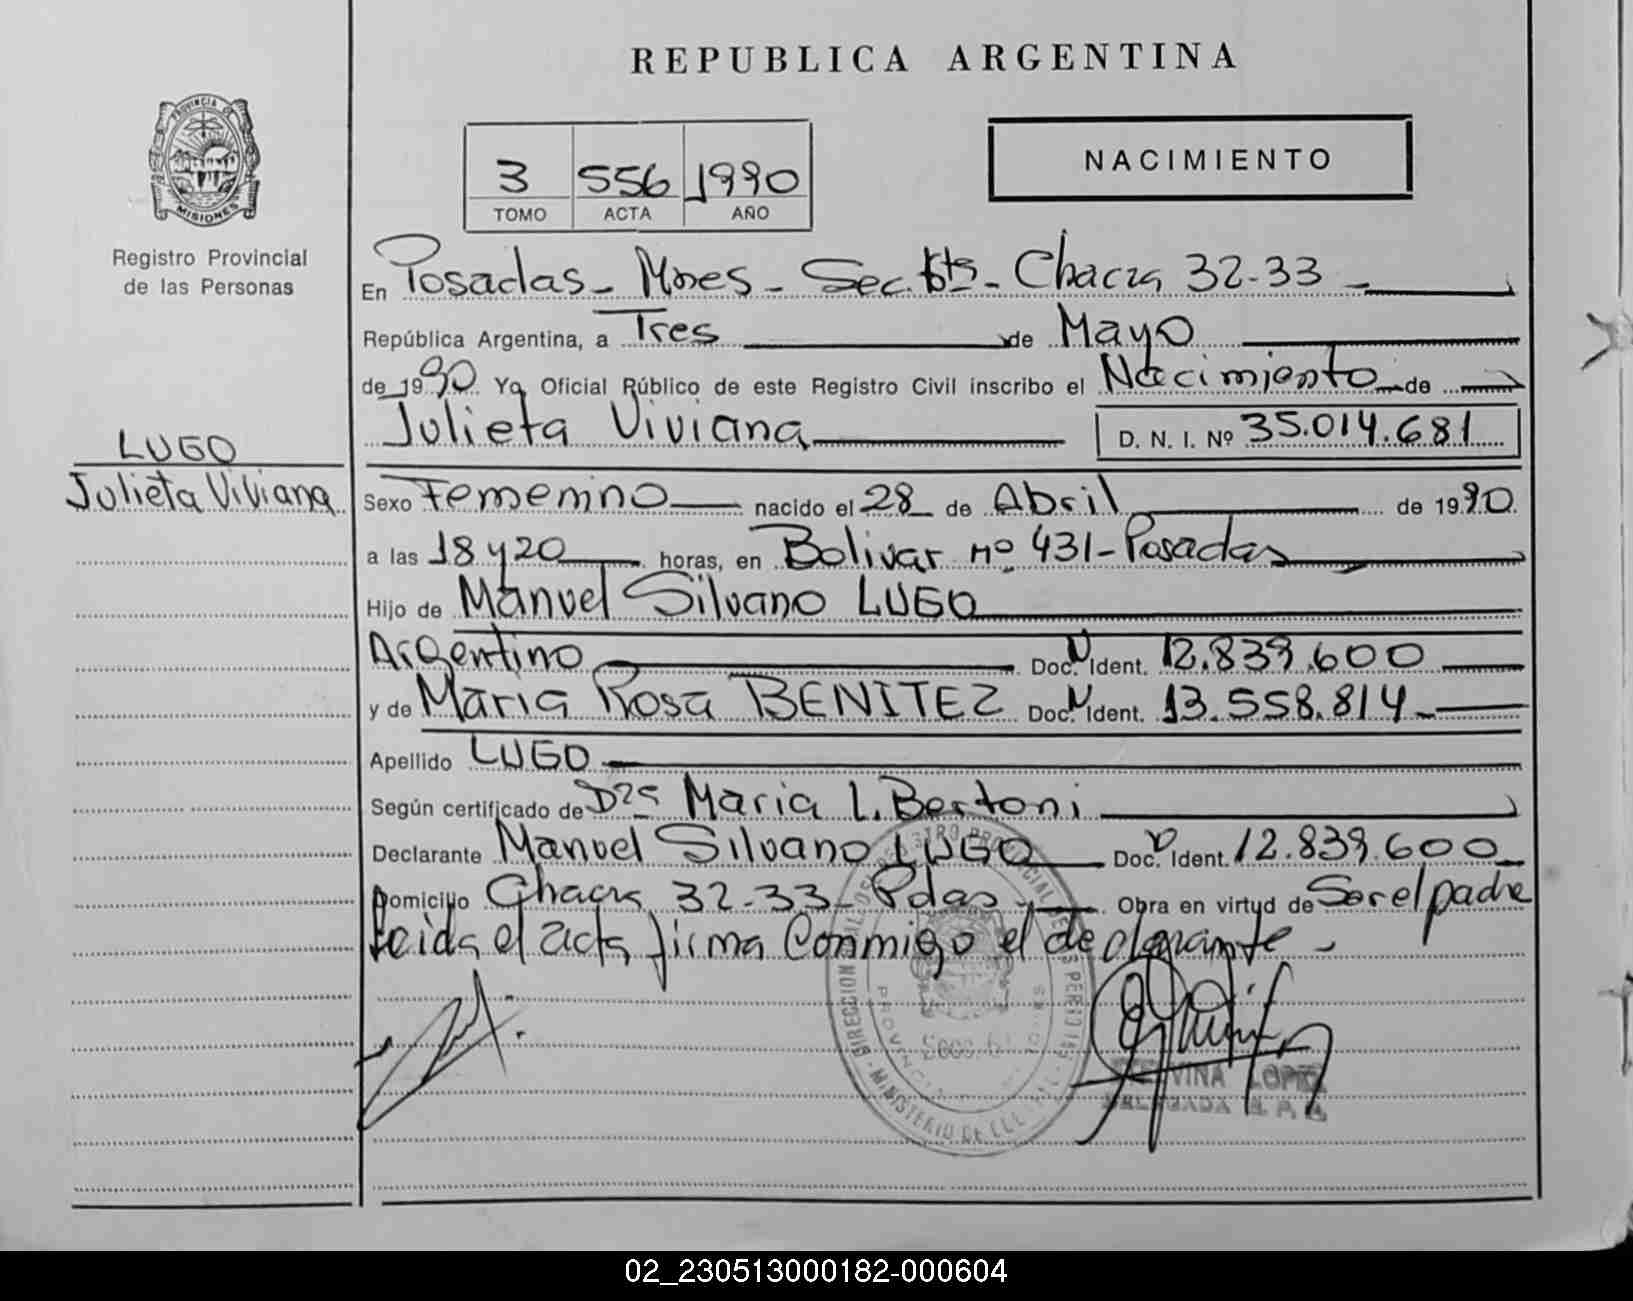 REPUBLICA ARGENTINA
PROVINCIA DE
MISIONES
Registro Provincial
de las Personas
3 556 1990
TOMO ACTA AÑO
NACIMIENTO
En Posadas - Mnes - Sec. 6ta - Chacra 32-33 -
República Argentina, a Tres de Mayo
de 1990 Yo Oficial Público de este Registro Civil inscribo el Nacimiento de
Julieta Viviana D. N. I. Nº 35.014.681
LUGO
Julieta Viviana
Sexo Femenino nacido el 28 de Abril de 1990
a las 18 y 20 horas, en Bolivar nº 431 - Posadas
Hijo de Manuel Silvano LUGO
Argentino Doc. N Ident. 12.839.600
y de Maria Rosa BENITEZ Doc. N Ident. 13.558.814
Apellido LUGO
Según certificado de Dra Maria L. Bertoni
Declarante Manuel Silvano LUGO Doc. N Ident. 12.839.600
Domicilio Chacra 32-33 - Pdas - Obra en virtud de Ser el padre
leida el acta firma conmigo el declarante -
LOPEZ
DELEGADA
02_230513000182-000604